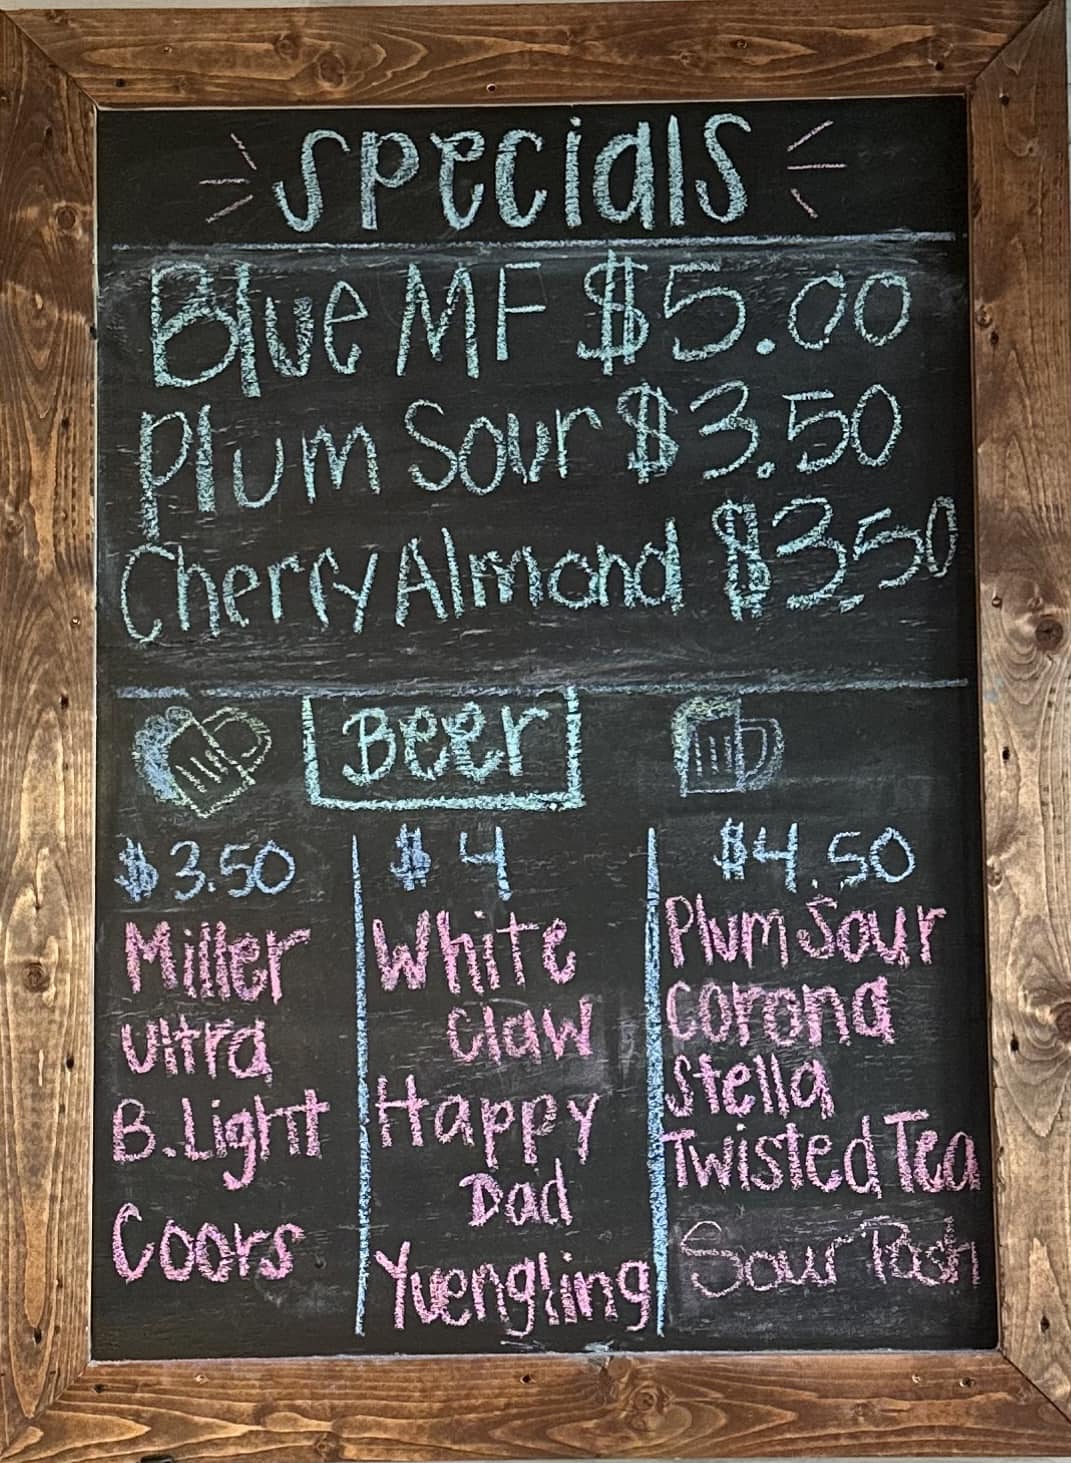 Specials
Blue MF $5.00
Plum Sour $3.50
Cherry Almond $3.50
Beer
$3.50
Miller
Ultra
B.Light
Coors
$4
White
Claw
Happy
Dad
Yuengling
$4.50
Plum Sour
Corona
Stella
Twisted Tea
Sour Posh